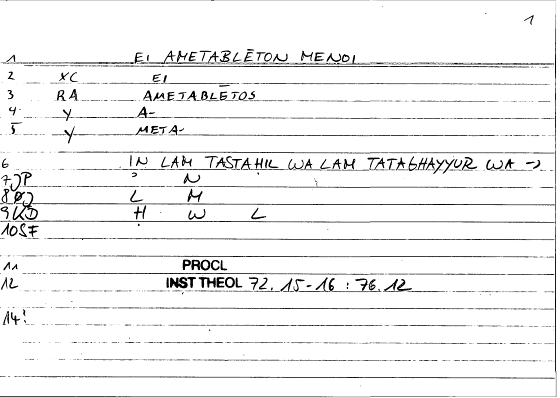 1
1 EI AMETABLĒTON MENOI
2 XC EI
3 RA AMETABLĒTOS
4 Y A-
5 Y META-
6 IN LAM TASTAHIL WA LAM TATAGHAYYUR WA →
7 JP ʾ N
8 L M
9 KD H W L
10 SF
11 PROCL
12 INST THEOL 72. 15-16 : 76.12
14!